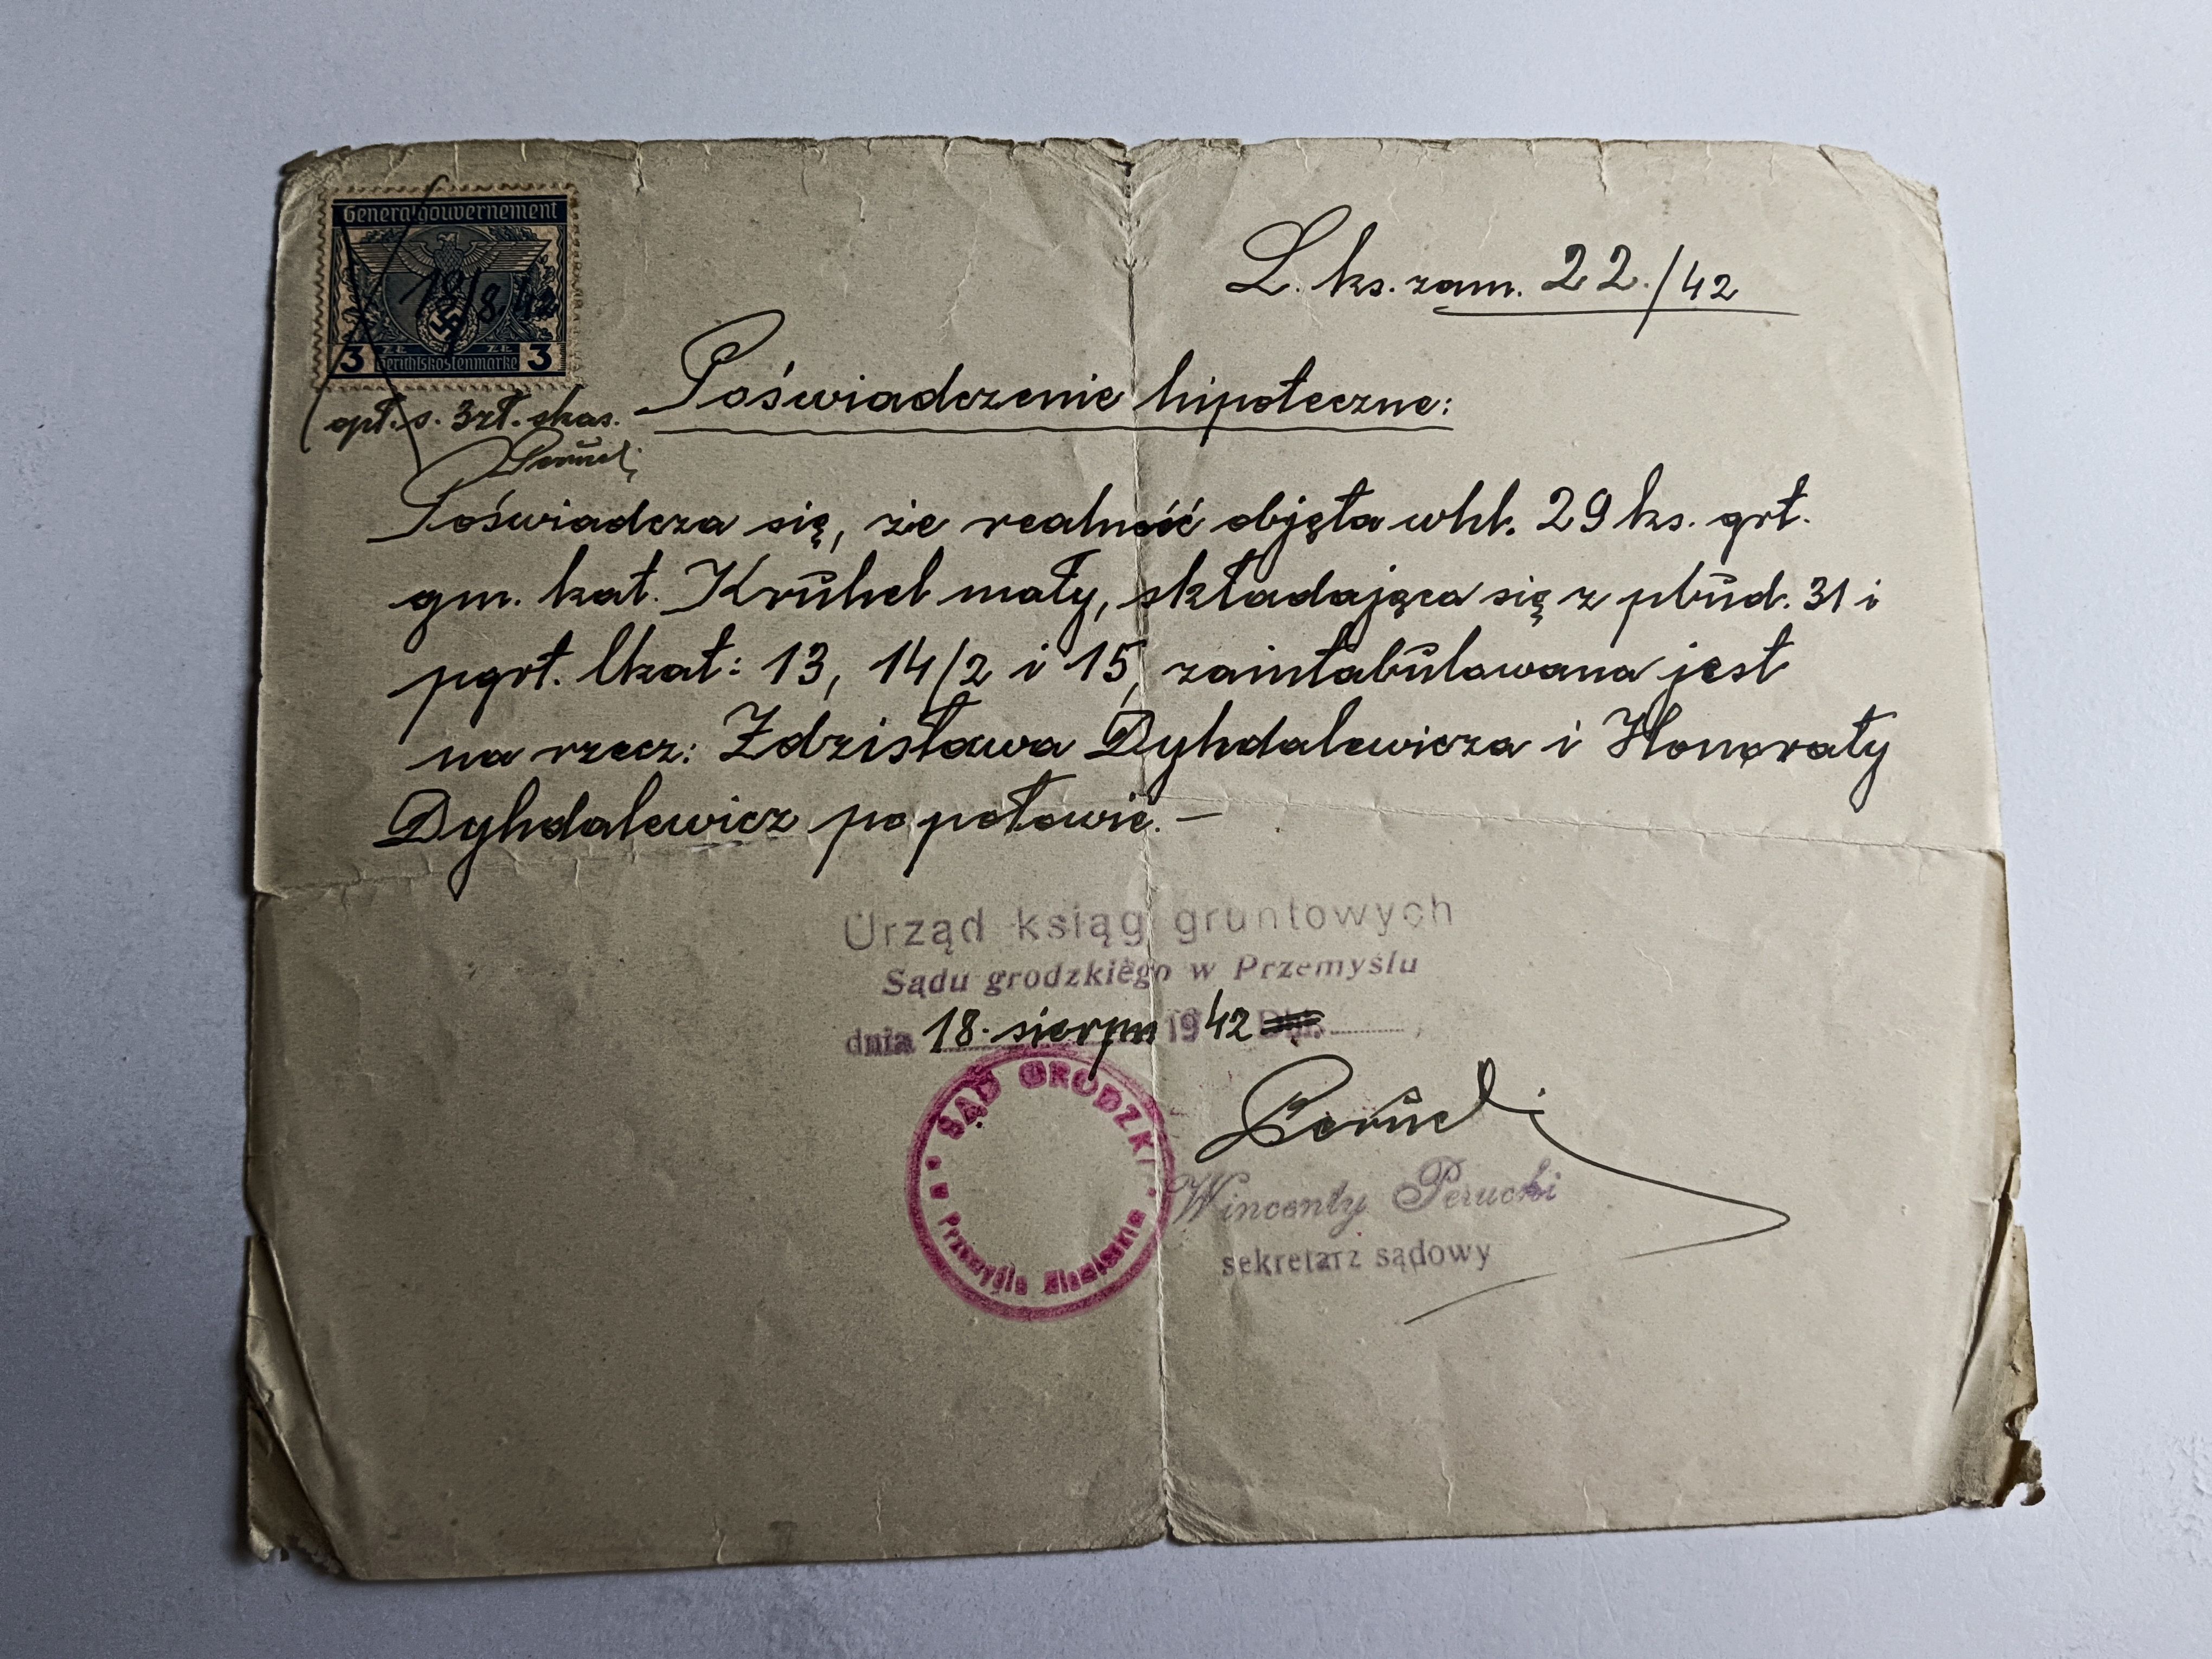 Generalgouvernement
18/8. 42
3 ZŁ ZŁ 3
Gerichtskostenmarke
opł. s. 3zł. skas.
Perucki
L. ks. zam. 22./42
Poświadczenie hipoteczne:
Poświadcza się, że realność objęta whl. 29 ks. grt.
gm. kat. Kruhel mały, składająca się z pbud. 31 i
pgrt. lkat: 13, 14/2 i 15, zaintabulowana jest
na rzecz: Zdzisława Dyhdalewicza i Honoraty
Dyhdalewicz po połowie. –
Urząd ksiąg gruntowych
Sądu grodzkiego w Przemyślu
dnia 18. sierpn 1942
SĄD GRODZKI
w Przemyślu
Perucki
Wincenty Perucki
sekretarz sądowy